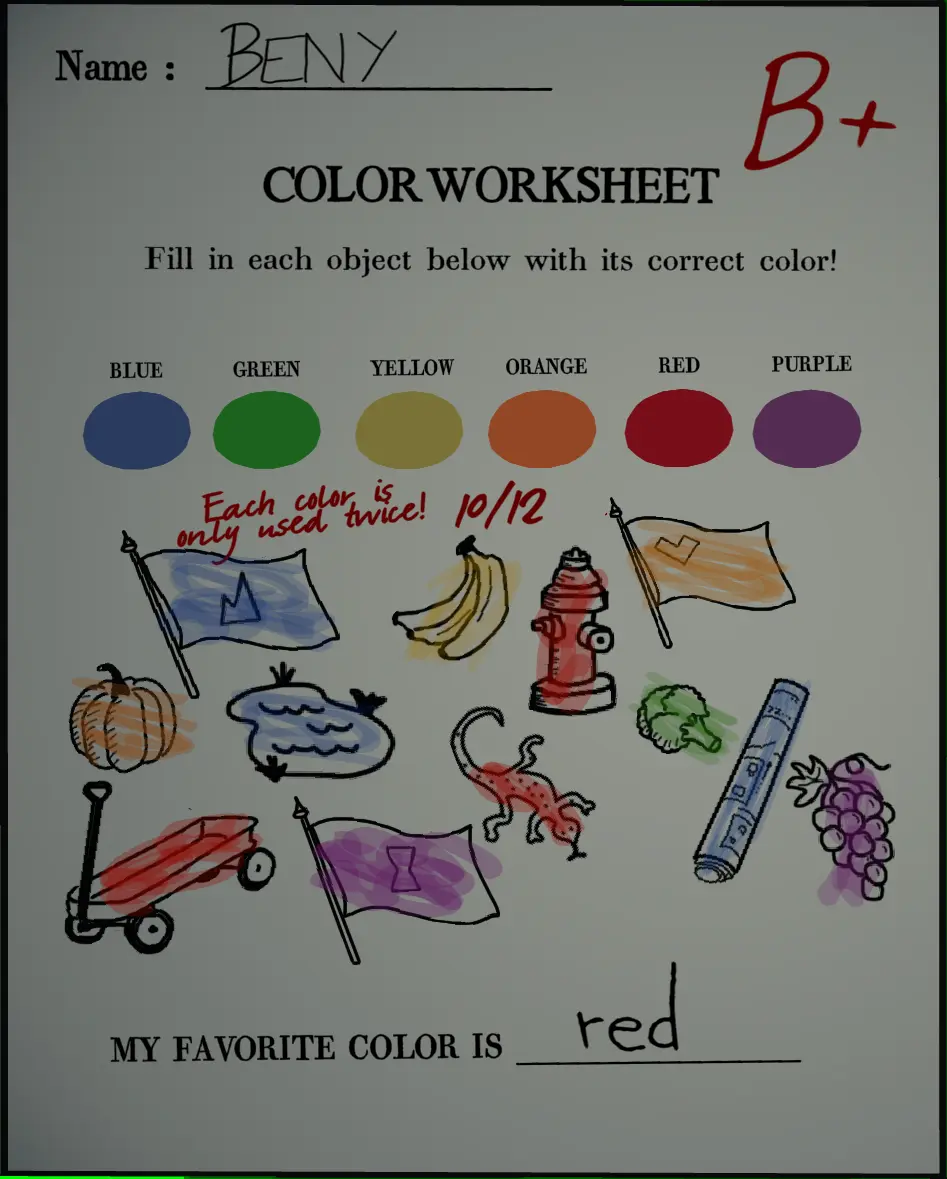 Name : BENY
B+
COLOR WORKSHEET
Fill in each object below with its correct color!
BLUE GREEN YELLOW ORANGE RED PURPLE
Each color is
only used twice! 10/12
MY FAVORITE COLOR IS red